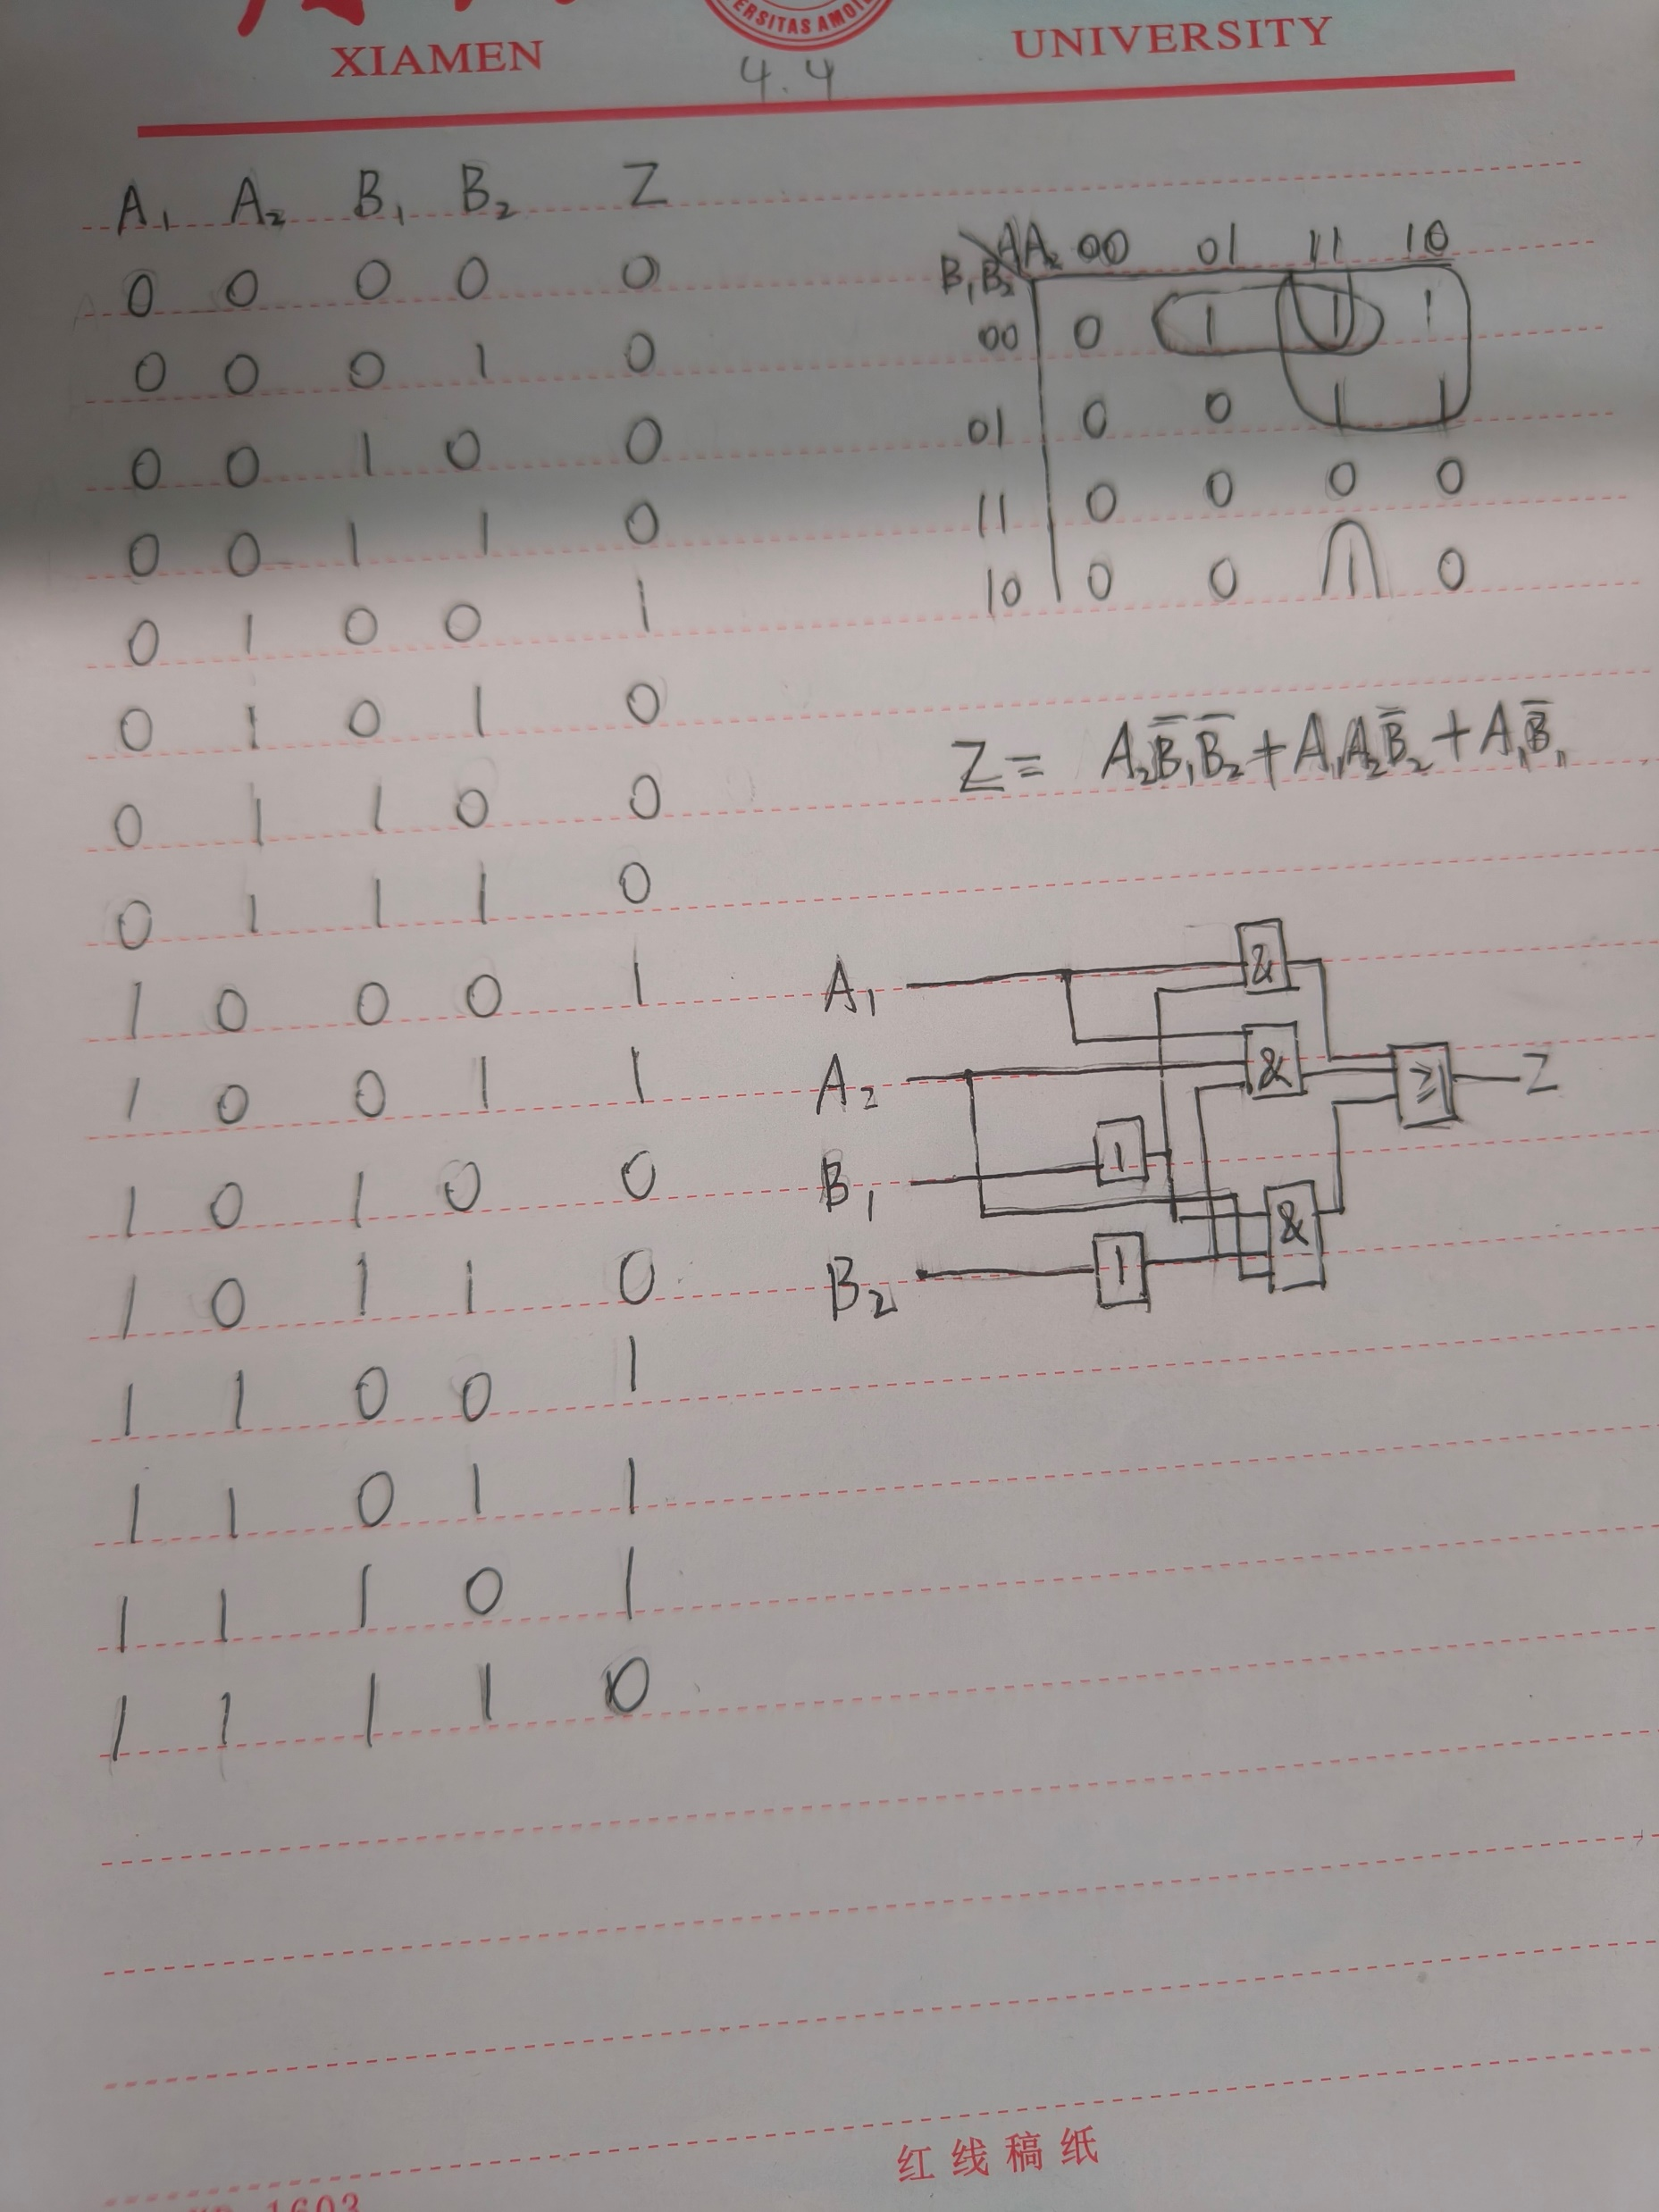 XIAMEN
ERSITAS AMOI
UNIVERSITY
4.4
A₁ A₂ B₁ B₂ Z
0 0 0 0 0
0 0 0 1 0
0 0 1 0 0
0 0 1 1 0
0 1 0 0 1
0 1 0 1 0
0 1 1 0 0
0 1 1 1 0
1 0 0 0 1
1 0 0 1 1
1 0 1 0 0
1 0 1 1 0
1 1 0 0 1
1 1 0 1 1
1 1 1 0 1
1 1 1 1 0
A₁A₂ 00 01 11 10
B₁B₂
00 0 1 1 1
01 0 0 1 1
11 0 0 0 0
10 0 0 1 0
Z = A₂B̅₁B̅₂ + A₁A₂B̅₂ + A₁B̅₁
A₁ &
A₂ & ≥1 Z
B₁ 1
&
B₂ 1
红线稿纸
1603